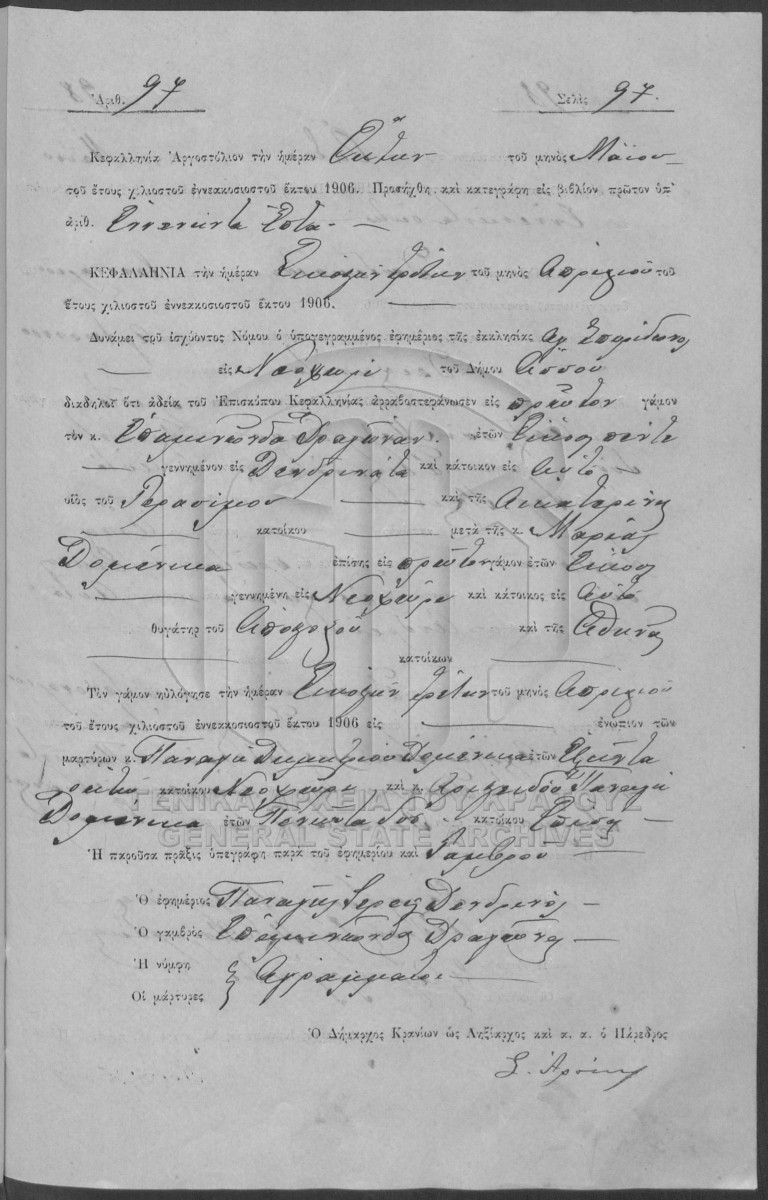 Ἀριθ. 97 Σελὶς 97.
Κεφαλληνία Ἀργοστόλιον τὴν ἡμέραν Ὀκτὼ τοῦ μηνὸς Μαΐου
τοῦ ἔτους χιλιοστοῦ ἐννεακοσιοστοῦ ἕκτου 1906. Προσήχθη καὶ κατεγράφη εἰς βιβλίον πρῶτον ὑπ'
ἀριθ. Ἐννενῆντα Ἑπτά.
ΚΕΦΑΛΛΗΝΙΑ τὴν ἡμέραν Εἰκοστὴν τρίτην τοῦ μηνὸς Ἀπριλίου τοῦ
ἔτους χιλιοστοῦ ἐννεακοσιοστοῦ ἕκτου 1906.
Δυνάμει τοῦ ἰσχύοντος Νόμου ὁ ὑπογεγραμμένος ἐφημέριος τῆς ἐκκλησίας Ἁγ Σπυρίδωνος
εἰς Νεοχῶρι τοῦ Δήμου Ἀσσου
διαδηλοῖ ὅτι ἀδείᾳ τοῦ Ἐπισκόπου Κεφαλληνίας ἀρραβοστεφάνωσεν εἰς πρῶτον γάμον
τὸν κ. Ἐπαμινώνδα Δραγώναν ἐτῶν Εἴκοσι πέντε
γεννημένον εἰς Δενδρινάτα καὶ κάτοικον εἰς Αὐτό
υἱὸς τοῦ Γερασίμου καὶ τῆς Αἰκατερίνης
κατοίκου μετὰ τῆς κ. Μαρίας
Δομένικα ἐπίσης εἰς πρῶτον γάμον ἐτῶν Εἴκοσι
γεννημένη εἰς Νεοχῶρι καὶ κάτοικος εἰς Αὐτό
θυγάτηρ τοῦ καὶ τῆς Ἀθηνᾶς
κατοίκων
Τὸν γάμον ηὐλόγησε τὴν ἡμέραν Εἰκοστὴν τρίτην τοῦ μηνὸς Ἀπριλίου
τοῦ ἔτους χιλιοστοῦ ἐννεακοσιοστοῦ ἕκτου 1906 εἰς ἐνώπιον τῶν
μαρτύρων κ. Παναγῆ Δημητρίου Δομένικα ἐτῶν Ἑξῆντα
ὀκτώ κατοίκου Νεοχῶρι καὶ κ. Ἀριστείδου Παναγῆ
Δομένικα ἐτῶν κατοίκου Ἐπίσης
ΓΕΝΙΚΑ ΑΡΧΕΙΑ ΤΟΥ ΚΡΑΤΟΥΣ
GENERAL STATE ARCHIVES
Ἡ παροῦσα πρᾶξις ὑπεγράφη παρὰ τοῦ ἐφημερίου καὶ Γαμβροῦ
Ὁ ἐφημέριος Παναγῆς Ἱερεὺς Δενδρινός
Ὁ γαμβρὸς Ἐπαμινώνδας Δραγώνας
Ἡ νύμφη
Οἱ μάρτυρες } Ἀγράμματοι
Ὁ Δήμαρχος Κρανίων ὡς Ληξίαρχος καὶ κ. α. ὁ Πάρεδρος